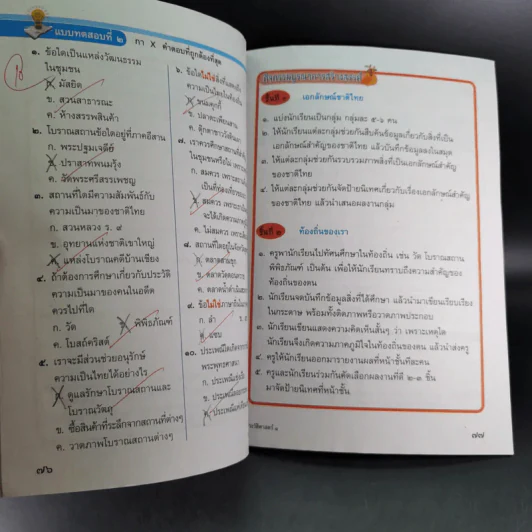 แบบทดสอบที่ ๒
กา X คำตอบที่ถูกต้องที่สุด
๑. ข้อใดเป็นแหล่งวัฒนธรรม
ในชุมชน
ก. มัสยิด
ข. สวนสาธารณะ
ค. ห้างสรรพสินค้า
๒. โบราณสถานข้อใดอยู่ที่ภาคอีสาน
ก. พระปฐมเจดีย์
ข. ปราสาทพนมรุ้ง
ค. วัดพระศรีสรรเพชญ
๓. สถานที่ใดมีความสัมพันธ์กับ
ความเป็นมาของชาติไทย
ก. สวนหลวง ร. ๙
ข. อุทยานแห่งชาติเขาใหญ่
ค. แหล่งโบราณคดีบ้านเชียง
๔. ถ้าต้องการศึกษาเกี่ยวกับประวัติ
ความเป็นมาของคนในอดีต
ควรไปที่ใด
ก. วัด
ข. พิพิธภัณฑ์
ค. โบสถ์คริสต์
๕. เราจะมีส่วนช่วยอนุรักษ์
ความเป็นไทยได้อย่างไร
ก. ดูแลรักษาโบราณสถานและ
โบราณวัตถุ
ข. ซื้อสินค้าที่ระลึกจากสถานที่ต่างๆ
ค. วาดภาพโบราณสถานต่างๆ
๗๖
๖. ข้อใดไม่ใช่สิ่งที่แสดงถึง
ความเป็นไทยในท้องถิ่น
ก. ขนมคุกกี้
ข. ปลาตะเพียนสาน
ค. ตุ๊กตาชาววัง
๗. เราควรศึกษาสถานที่สำคัญ
ในชุมชนหรือไม่ เพราะ
ก. สมควร เพราะ
เป็นที่ท่องเที่ยว
ข. สมควร เพราะ
จะได้เกิดความภูมิ
ค. ไม่สมควร เพราะ
๘. สถานที่ใดอยู่ใน
ก. ตลาดสามชุก
ข. ตลาดวัด
ค. ตลาดน้ำ
๙. ข้อใดไม่ใช่ภาษาถิ่น
ก. ลำ
ค. แซบ
๑๐. ประเพณีใดเกี่ยวกับ
พระพุทธศาสนา
ก. ประเพณี
ข. ประเพณี
ค. ประเพณี
ชิ้นที่ ๑ เอกลักษณ์ชาติไทย
๑. แบ่งนักเรียนเป็นกลุ่ม กลุ่มละ ๕-๖ คน
๒. ให้นักเรียนแต่ละกลุ่มช่วยกันสืบค้นข้อมูลเกี่ยวกับสิ่งที่เป็น
เอกลักษณ์สำคัญของชาติไทย แล้วบันทึกข้อมูลลงในสมุด
๓. ให้แต่ละกลุ่มช่วยกันรวบรวมภาพสิ่งที่เป็นเอกลักษณ์สำคัญ
ของชาติไทย
๔. ให้แต่ละกลุ่มช่วยกันจัดป้ายนิเทศเกี่ยวกับเรื่องเอกลักษณ์สำคัญ
ของชาติไทย แล้วนำเสนอผลงานกลุ่ม
ชิ้นที่ ๒ ท้องถิ่นของเรา
๑. ครูพานักเรียนไปทัศนศึกษาในท้องถิ่น เช่น วัด โบราณสถาน
พิพิธภัณฑ์ เป็นต้น เพื่อให้นักเรียนทราบถึงความสำคัญของ
ท้องถิ่นของตน
๒. นักเรียนจดบันทึกข้อมูลสิ่งที่ได้ศึกษา แล้วนำมาเขียนเรียบเรียง
ในกระดาษ พร้อมทั้งติดภาพหรือวาดภาพประกอบ
๓. นักเรียนเขียนแสดงความคิดเห็นสั้นๆ ว่า เพราะเหตุใด
นักเรียนจึงเกิดความภาคภูมิใจในท้องถิ่นของตน แล้วนำส่งครู
๔. ครูให้นักเรียนออกมารายงานผลที่หน้าชั้นทีละคน
๕. ครูและนักเรียนร่วมกันคัดเลือกผลงานที่ดี ๒-๓ ชิ้น
มาจัดป้ายนิเทศที่หน้าชั้น
๗๗